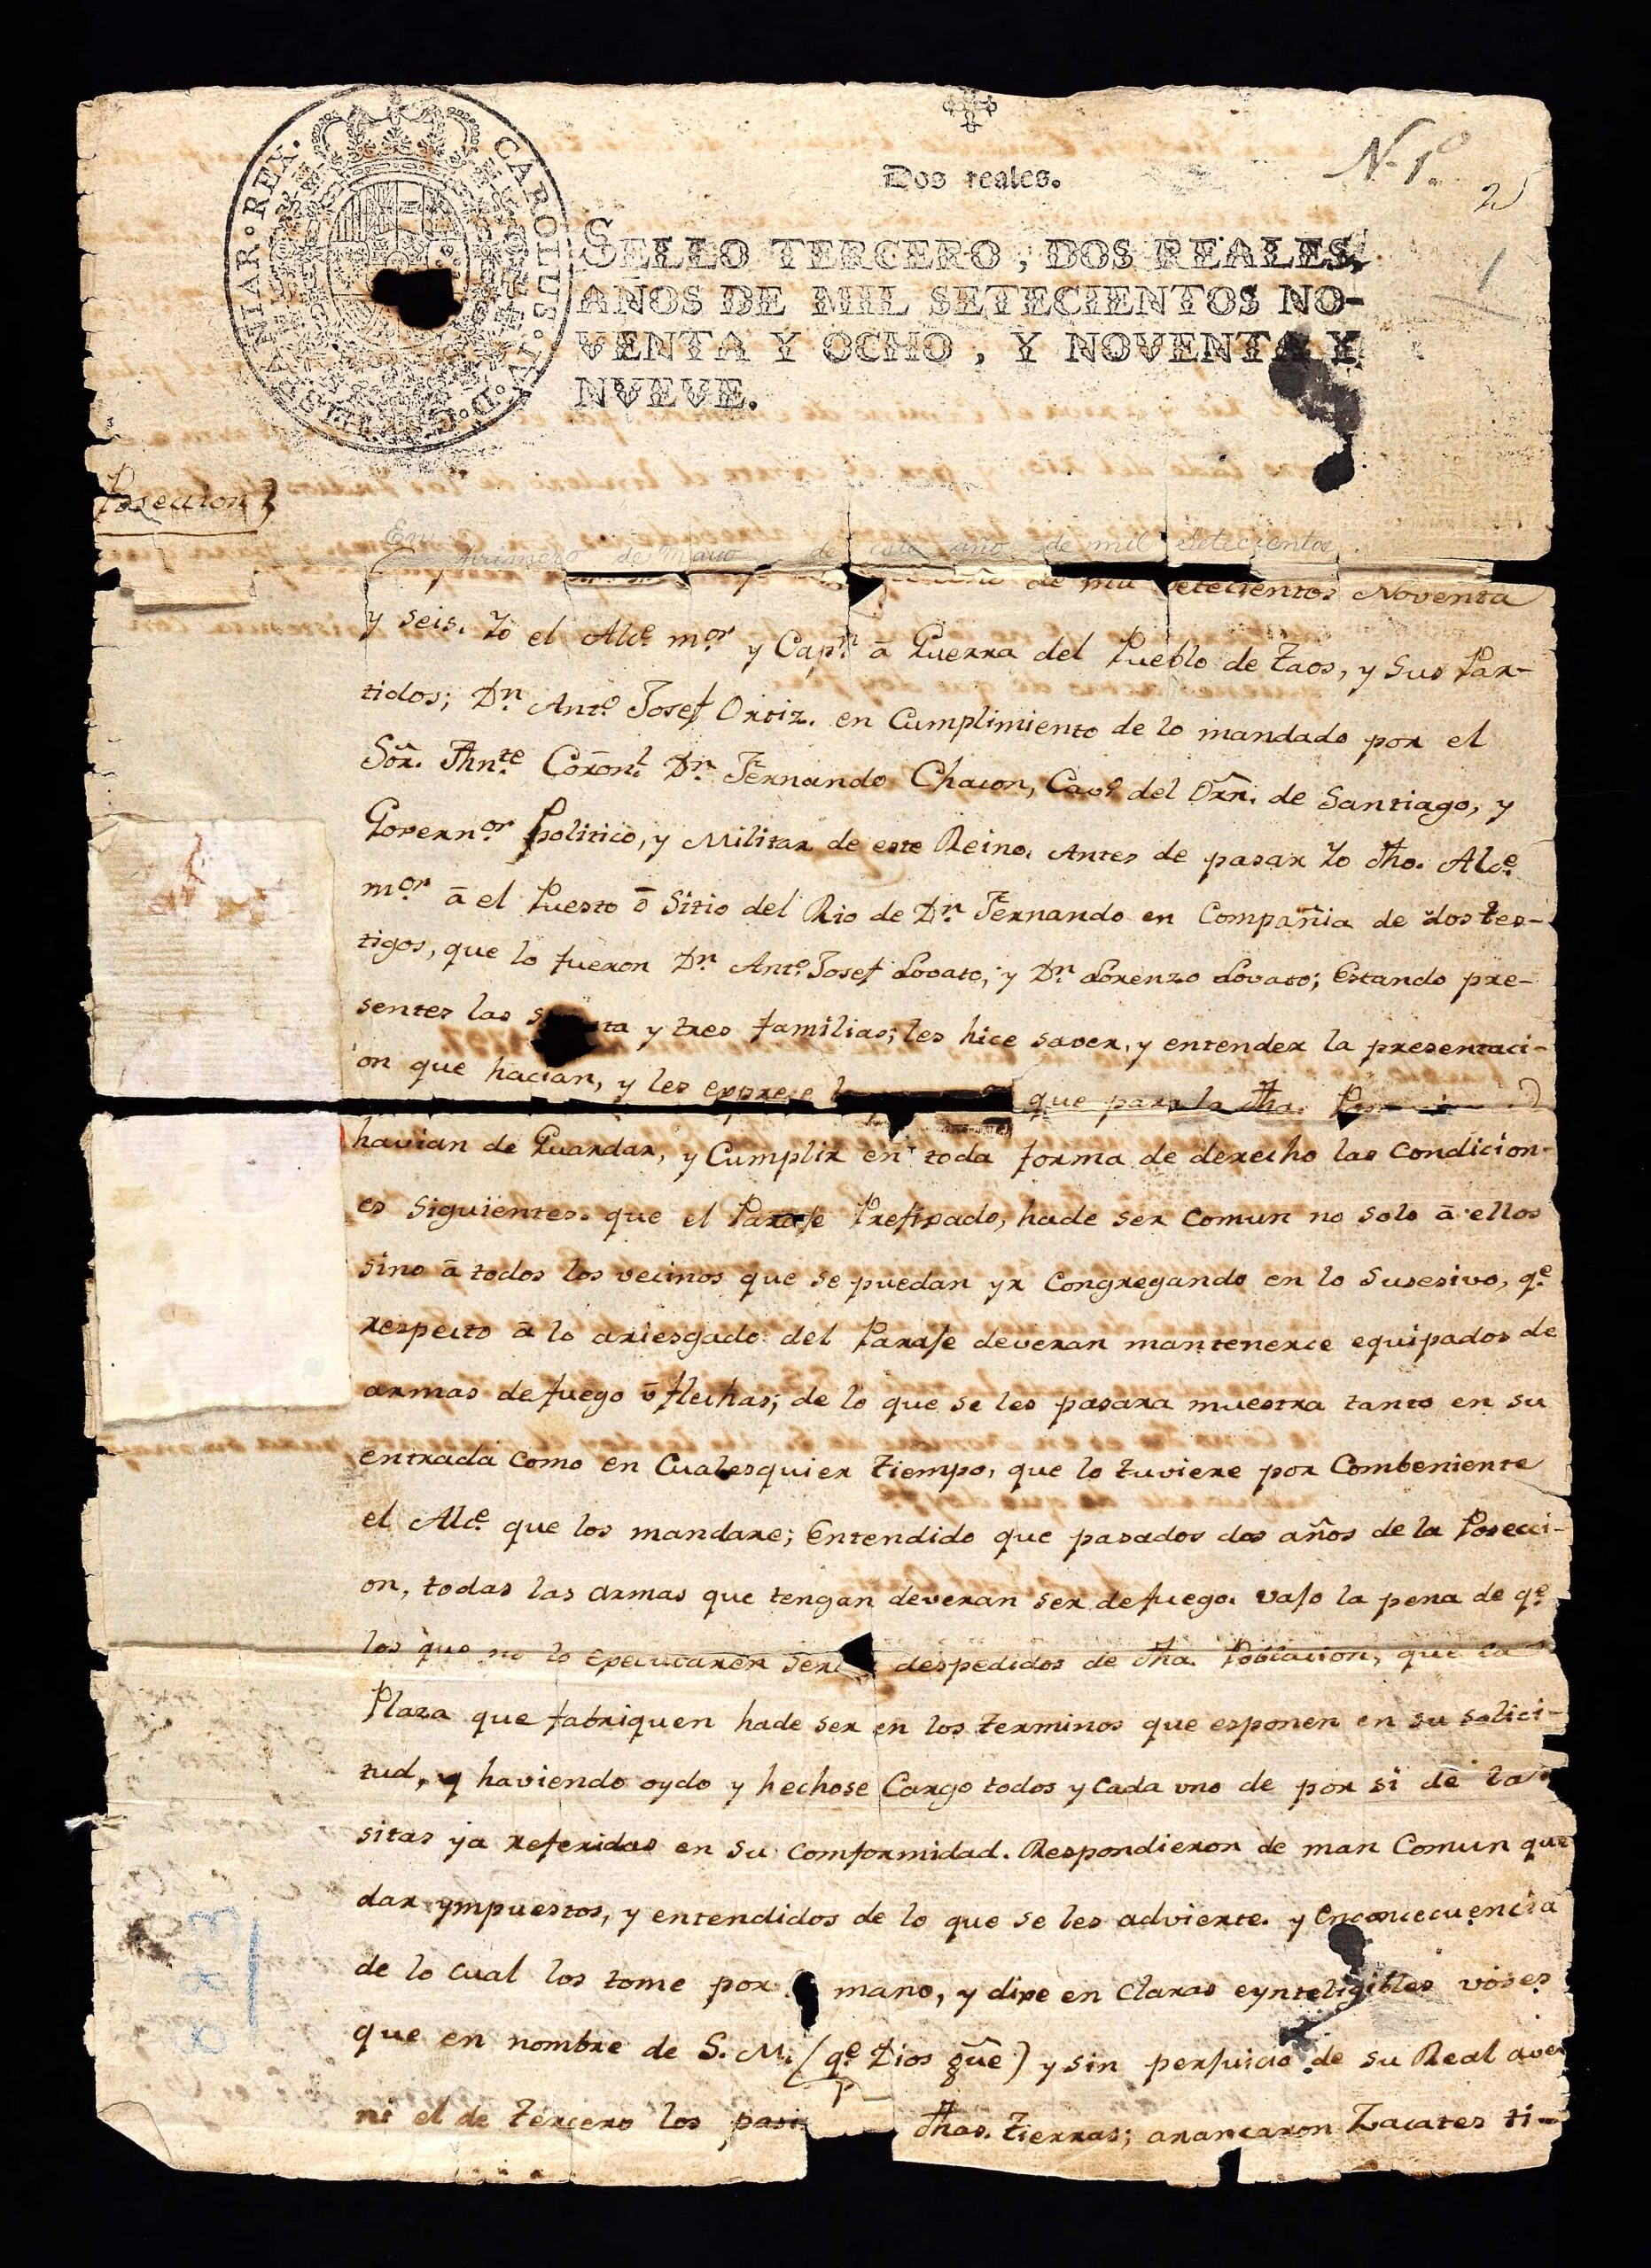 CAROLUS. IV. D. G. HISPANIAR. REX.
Dos reales.
N. 1º
2
1
SELLO TERCERO, DOS REALES,
AÑOS DE MIL SETECIENTOS NO-
VENTA Y OCHO, Y NOVENTA Y
NVEVE.
Poseccion
En
primero de Mayo de este año de mil Setecientos
de mil Setecientos Noventa
y seis. Yo el Alce. mor. y Capn. â Guerra del Pueblo de Taos, y sus Par-
tidos; Dn. Anto. Josef Ortiz. en Cumplimiento de lo mandado por el
Sôr. Thnte. Corônl. Dn. Fernando Chacon, Cavo. del Orn. de Santiago, y
Governor. politico, y Militar de este Reino. Antes de pasar Yo dho. Alce.
mor. â el Puesto ô Sitio del Rio de Dn. Fernando en Compañia de dos tes-
tigos, que lo fueron Dn. Anto. Josef Lovato, y Dn. Lorenzo Lovato; Estando pre-
sentes las s ta y tres familias; les hice saver, y entender la presentaci-
on que hacian, y les exprese que para la dha.
havian de Guardar, y Cumplir en toda forma de derecho las Condicion-
es siguientes. que el Paraje Prefixado, hade ser Comun no solo â ellos
sino â todos los vecinos que se puedan yr Congregando en lo Susesivo, qe.
respecto â lo ariesgado del Paraje deveran mantenerce equipados de
armas de fuego ô flechas; de lo que se les pasara muestra tanto en su
entrada Como en Cualesquier tiempo, que lo tuviere por Combeniente
el Alce. que los mandare; Entendido que pasados dos años de la Posecci-
on, todas las armas que tengan deveran ser de fuego. vajo la pena de qe.
los que no lo executaren seran despedidos de dha. Poblacion, que la
Plaza que fabriquen hade ser en los terminos que esponen en su solici-
tud, y haviendo oydo y hechose Cargo todos y Cada uno de por si de la
sitas ya referidas en su Comformidad. Respondieron de man Comun que
dar ympuestos, y entendidos de lo que se les advierte. y Enconcecuencia
de lo Cual los tome por mano, y dixe en Claras eynteligibles voses
que en nombre de S. M. (qe. Dios gûe) y sin perjuicio de su Real aver
ni el de tercero los dhas. tierras; arancaron Zacates ti-
683